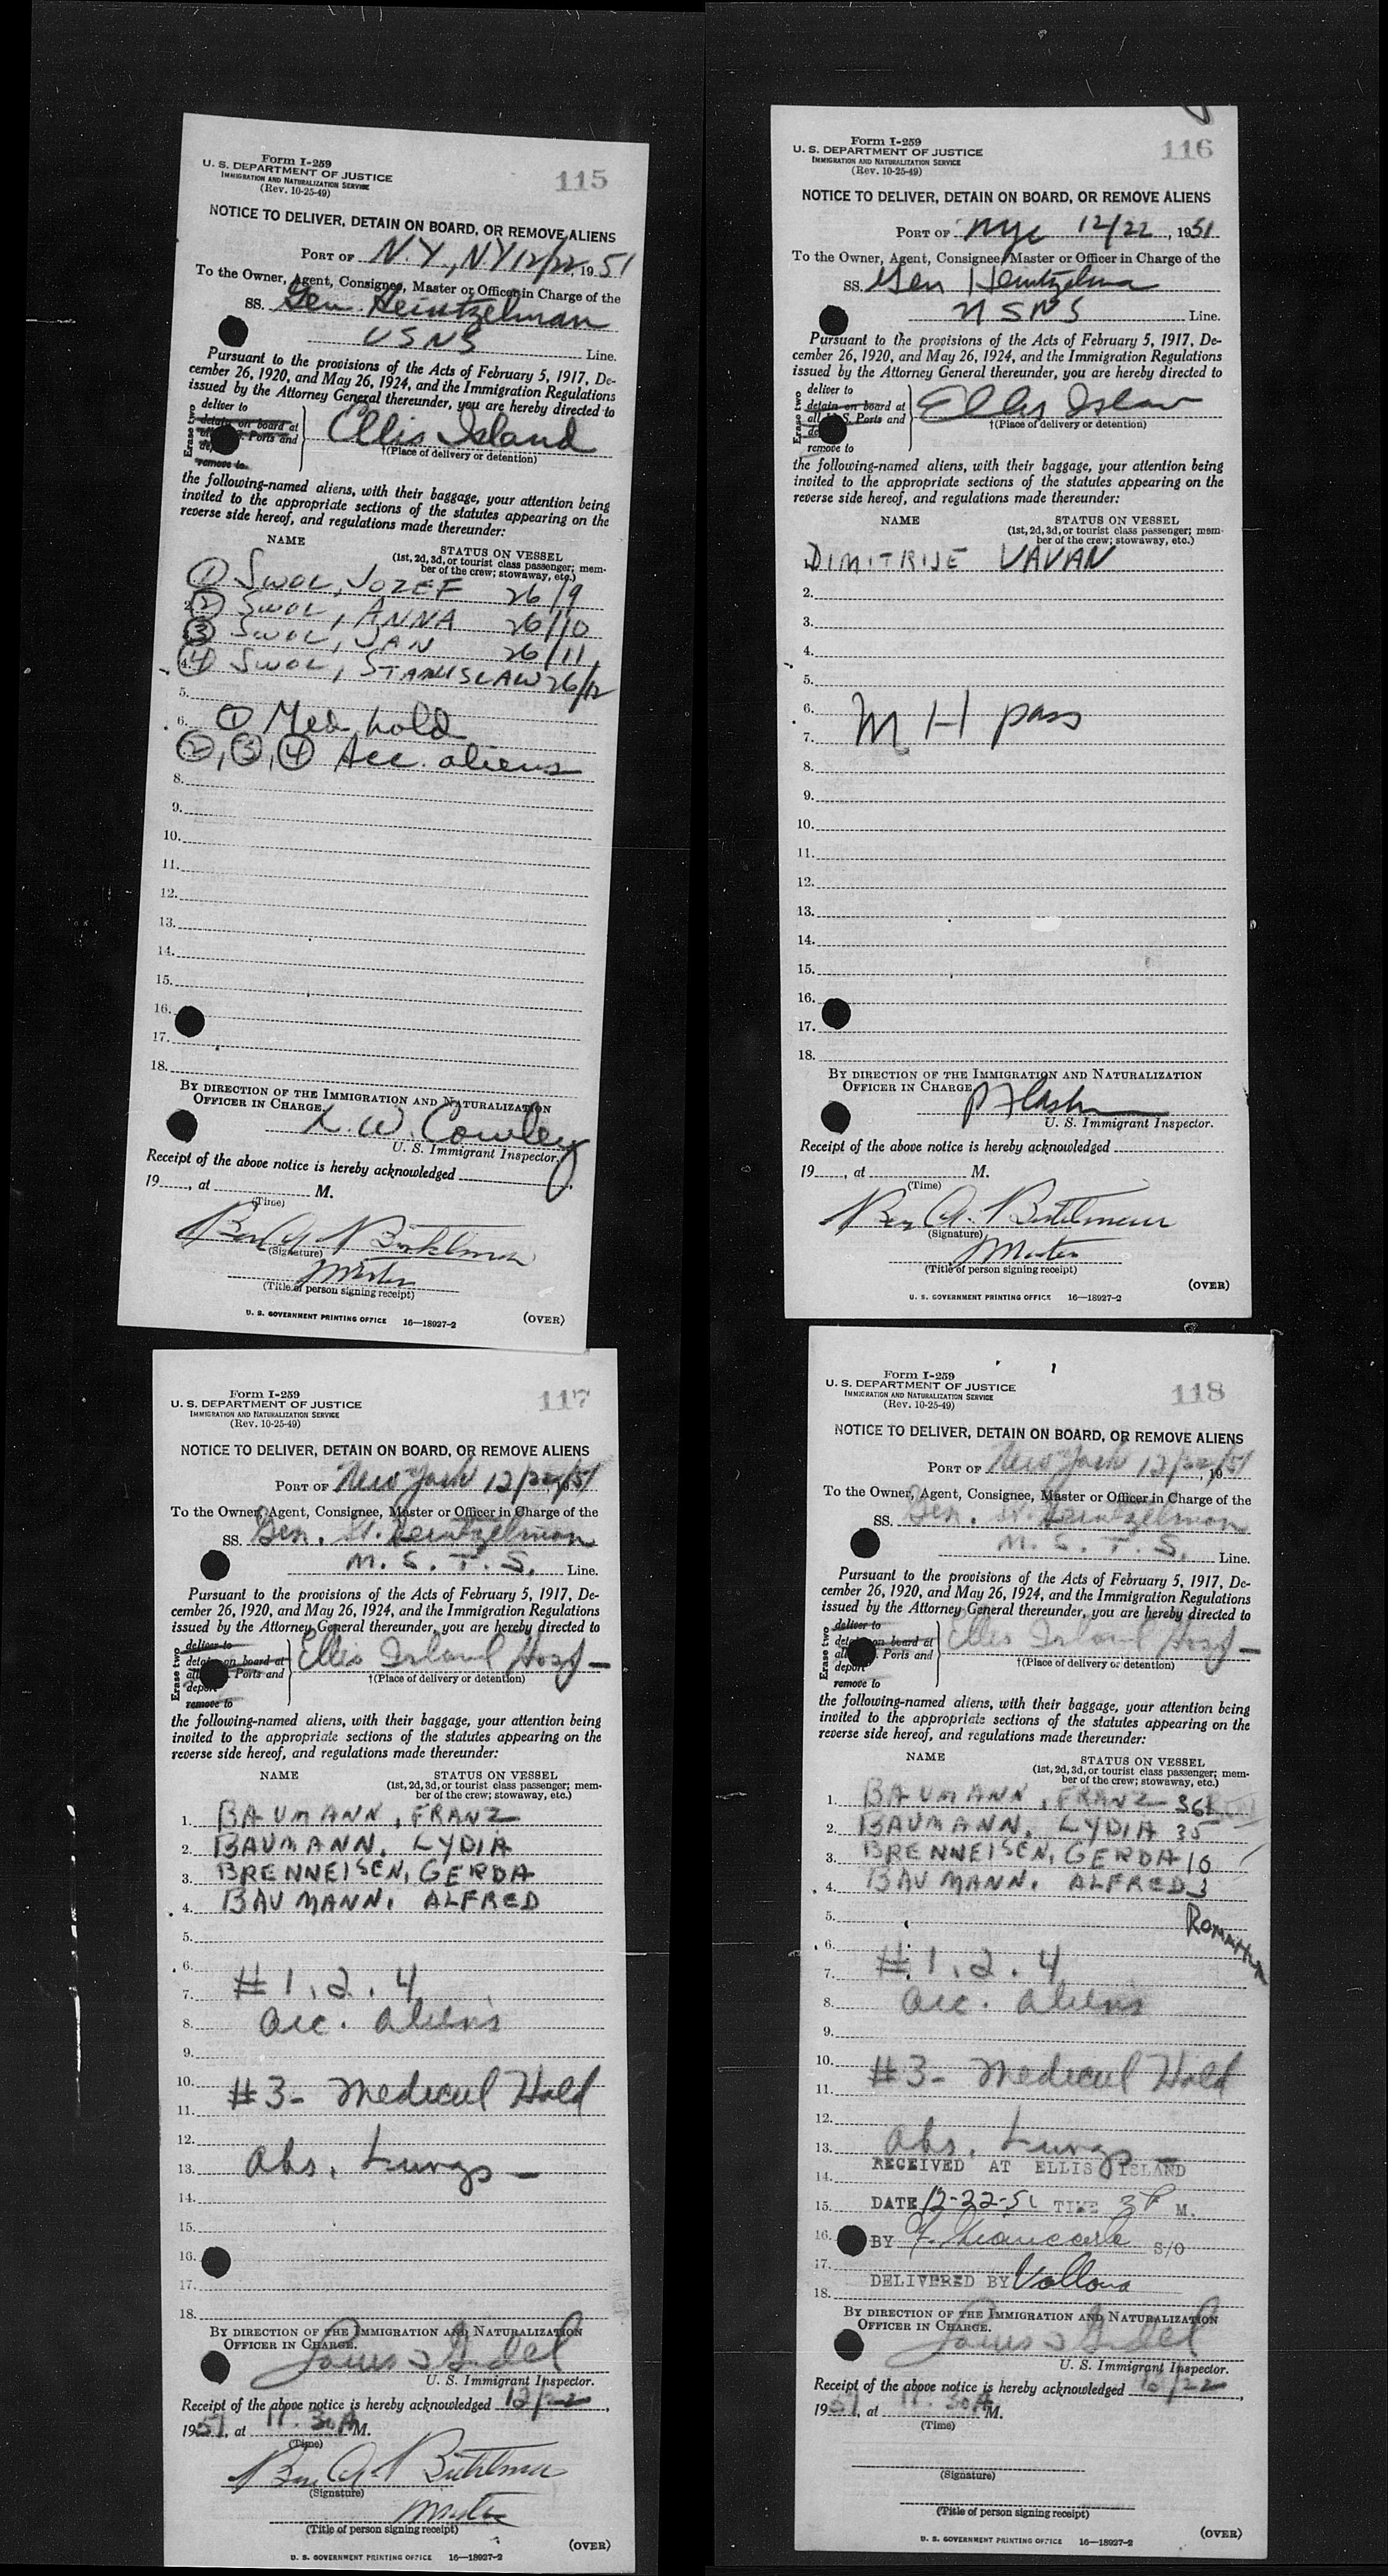 Form I-259
U. S. DEPARTMENT OF JUSTICE
IMMIGRATION AND NATURALIZATION SERVICE
(Rev. 10-25-49)
115
NOTICE TO DELIVER, DETAIN ON BOARD, OR REMOVE ALIENS
PORT OF N.Y., NY 12/22, 1951
To the Owner, Agent, Consignee, Master or Officer in Charge of the
SS. Gen. Heintzelman
USNS Line.
Pursuant to the provisions of the Acts of February 5, 1917, De-
cember 26, 1920, and May 26, 1924, and the Immigration Regulations
issued by the Attorney General thereunder, you are hereby directed to
Erase two
deliver to
detain on board at
Ports and
remove to
Ellis Island
†(Place of delivery or detention)
the following-named aliens, with their baggage, your attention being
invited to the appropriate sections of the statutes appearing on the
reverse side hereof, and regulations made thereunder:
NAME
STATUS ON VESSEL
(1st, 2d, 3d, or tourist class passenger; mem-
ber of the crew; stowaway, etc.)
① SWOL, JOZEF 26/9
2. ② SWOL, ANNA 26/10
③ SWOL, JAN 26/11
4. ④ SWOL, STANISLAW 26/12
5.
6. ① Med hold
②, ③, ④ Acc. aliens
8.
9.
10.
11.
12.
13.
14.
15.
16.
17.
18.
BY DIRECTION OF THE IMMIGRATION AND NATURALIZATION
OFFICER IN CHARGE.
L. W. Cowley
U. S. Immigrant Inspector.
Receipt of the above notice is hereby acknowledged
19, at M.
(Time)
(Signature)
Master
(Title of person signing receipt)
U. S. GOVERNMENT PRINTING OFFICE 16—18927-2
(OVER)
Form I-259
U. S. DEPARTMENT OF JUSTICE
IMMIGRATION AND NATURALIZATION SERVICE
(Rev. 10-25-49)
116
NOTICE TO DELIVER, DETAIN ON BOARD, OR REMOVE ALIENS
PORT OF NYC 12/22, 1951
To the Owner, Agent, Consignee, Master or Officer in Charge of the
SS. Gen Heintzelma
USNS Line.
Pursuant to the provisions of the Acts of February 5, 1917, De-
cember 26, 1920, and May 26, 1924, and the Immigration Regulations
issued by the Attorney General thereunder, you are hereby directed to
Erase two
deliver to
detain on board at
all U. S. Ports and
remove to
Ellis Islan
†(Place of delivery or detention)
the following-named aliens, with their baggage, your attention being
invited to the appropriate sections of the statutes appearing on the
reverse side hereof, and regulations made thereunder:
NAME
STATUS ON VESSEL
(1st, 2d, 3d, or tourist class passenger; mem-
ber of the crew; stowaway, etc.)
1. DIMITRIJE VAVAN
2.
3.
4.
5.
6.
M H pass
7.
8.
9.
10.
11.
12.
13.
14.
15.
16.
17.
18.
BY DIRECTION OF THE IMMIGRATION AND NATURALIZATION
OFFICER IN CHARGE.
U. S. Immigrant Inspector.
Receipt of the above notice is hereby acknowledged
19, at M.
(Time)
(Signature)
Master
(Title of person signing receipt)
(OVER)
U. S. GOVERNMENT PRINTING OFFICE 16—18927-2
Form I-259
U. S. DEPARTMENT OF JUSTICE
IMMIGRATION AND NATURALIZATION SERVICE
(Rev. 10-25-49)
117
NOTICE TO DELIVER, DETAIN ON BOARD, OR REMOVE ALIENS
PORT OF New York 12/22/51
To the Owner, Agent, Consignee, Master or Officer in Charge of the
SS. Gen. W. Heintzelman
M. S. T. S. Line.
Pursuant to the provisions of the Acts of February 5, 1917, De-
cember 26, 1920, and May 26, 1924, and the Immigration Regulations
issued by the Attorney General thereunder, you are hereby directed to
Erase two
deliver to
detain on board at
Ports and
deport
remove to
Ellis Island Hosp —
†(Place of delivery or detention)
the following-named aliens, with their baggage, your attention being
invited to the appropriate sections of the statutes appearing on the
reverse side hereof, and regulations made thereunder:
NAME
STATUS ON VESSEL
(1st, 2d, 3d, or tourist class passenger; mem-
ber of the crew; stowaway, etc.)
1. BAUMANN, FRANZ
2. BAUMANN, LYDIA
3. BRENNEISEN, GERDA
4. BAUMANN, ALFRED
5.
6.
7. # 1, 2, 4
8. acc. aliens
9.
10. #3- Medical Hold
11.
12.
13. Obs. Lungs —
14.
15.
16.
17.
18.
BY DIRECTION OF THE IMMIGRATION AND NATURALIZATION
OFFICER IN CHARGE.
U. S. Immigrant Inspector.
Receipt of the above notice is hereby acknowledged 12/22,
1951, at 11.30 A M.
(Time)
(Signature)
Master
(Title of person signing receipt)
(OVER)
U. S. GOVERNMENT PRINTING OFFICE 16—18927-2
Form I-259
U. S. DEPARTMENT OF JUSTICE
IMMIGRATION AND NATURALIZATION SERVICE
(Rev. 10-25-49)
118
NOTICE TO DELIVER, DETAIN ON BOARD, OR REMOVE ALIENS
PORT OF New York 12/22, 1951
To the Owner, Agent, Consignee, Master or Officer in Charge of the
SS. Gen. W. Heintzelman
M. S. T. S. Line.
Pursuant to the provisions of the Acts of February 5, 1917, De-
cember 26, 1920, and May 26, 1924, and the Immigration Regulations
issued by the Attorney General thereunder, you are hereby directed to
Erase two
deliver to
detain on board at
Ports and
deport
remove to
Ellis Island Hosp —
†(Place of delivery or detention)
the following-named aliens, with their baggage, your attention being
invited to the appropriate sections of the statutes appearing on the
reverse side hereof, and regulations made thereunder:
NAME
STATUS ON VESSEL
(1st, 2d, 3d, or tourist class passenger; mem-
ber of the crew; stowaway, etc.)
1. BAUMANN, FRANZ 36
2. BAUMANN, LYDIA 35
3. BRENNEISEN, GERDA 10
4. BAUMANN, ALFRED 3
5. ROMANIA
6.
7. # 1, 2, 4
8. acc. aliens
9.
10. #3- Medical Hold
11.
12.
13. Obs. Lungs —
RECEIVED AT ELLIS ISLAND
14.
15. DATE 12-22-51 TIME 3 P M.
16. BY S/O
17.
DELIVERED BY Vallona
18.
BY DIRECTION OF THE IMMIGRATION AND NATURALIZATION
OFFICER IN CHARGE.
U. S. Immigrant Inspector.
Receipt of the above notice is hereby acknowledged 12/22,
1951, at 11.30 A M.
(Time)
(Signature)
(Title of person signing receipt)
(OVER)
U. S. GOVERNMENT PRINTING OFFICE 16—18927-2